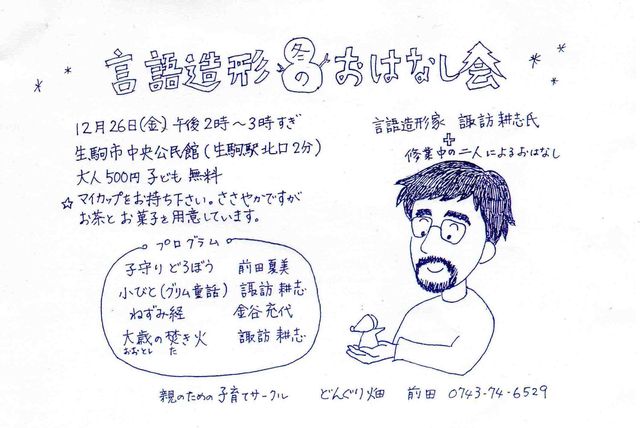 言語造形 冬の おはなし会
12月26日(金)午後2時〜3時すぎ
生駒市中央公民館(生駒駅北口2分)
大人500円 子ども 無料
☆マイカップをお持ち下さい。ささやかですが
お茶とお菓子を用意しています。
言語造形家 諏訪耕志氏
+
修業中の二人によるおはなし
プログラム
子守りどろぼう 前田夏美
小びと(グリム童話) 諏訪耕志
ねずみ経 金谷充代
大歳の焚き火 諏訪耕志
おおとし た
親のための子育てサークル どんぐり畑 前田 0743-74-6529